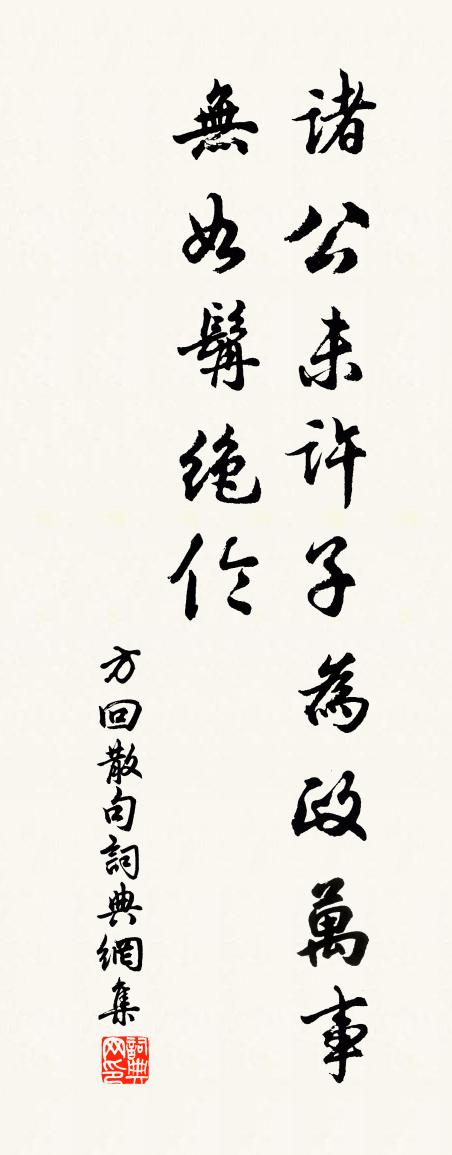 諸公未許子為政萬事
無如髯絶伦
方回散句詞典網集
詞典网印